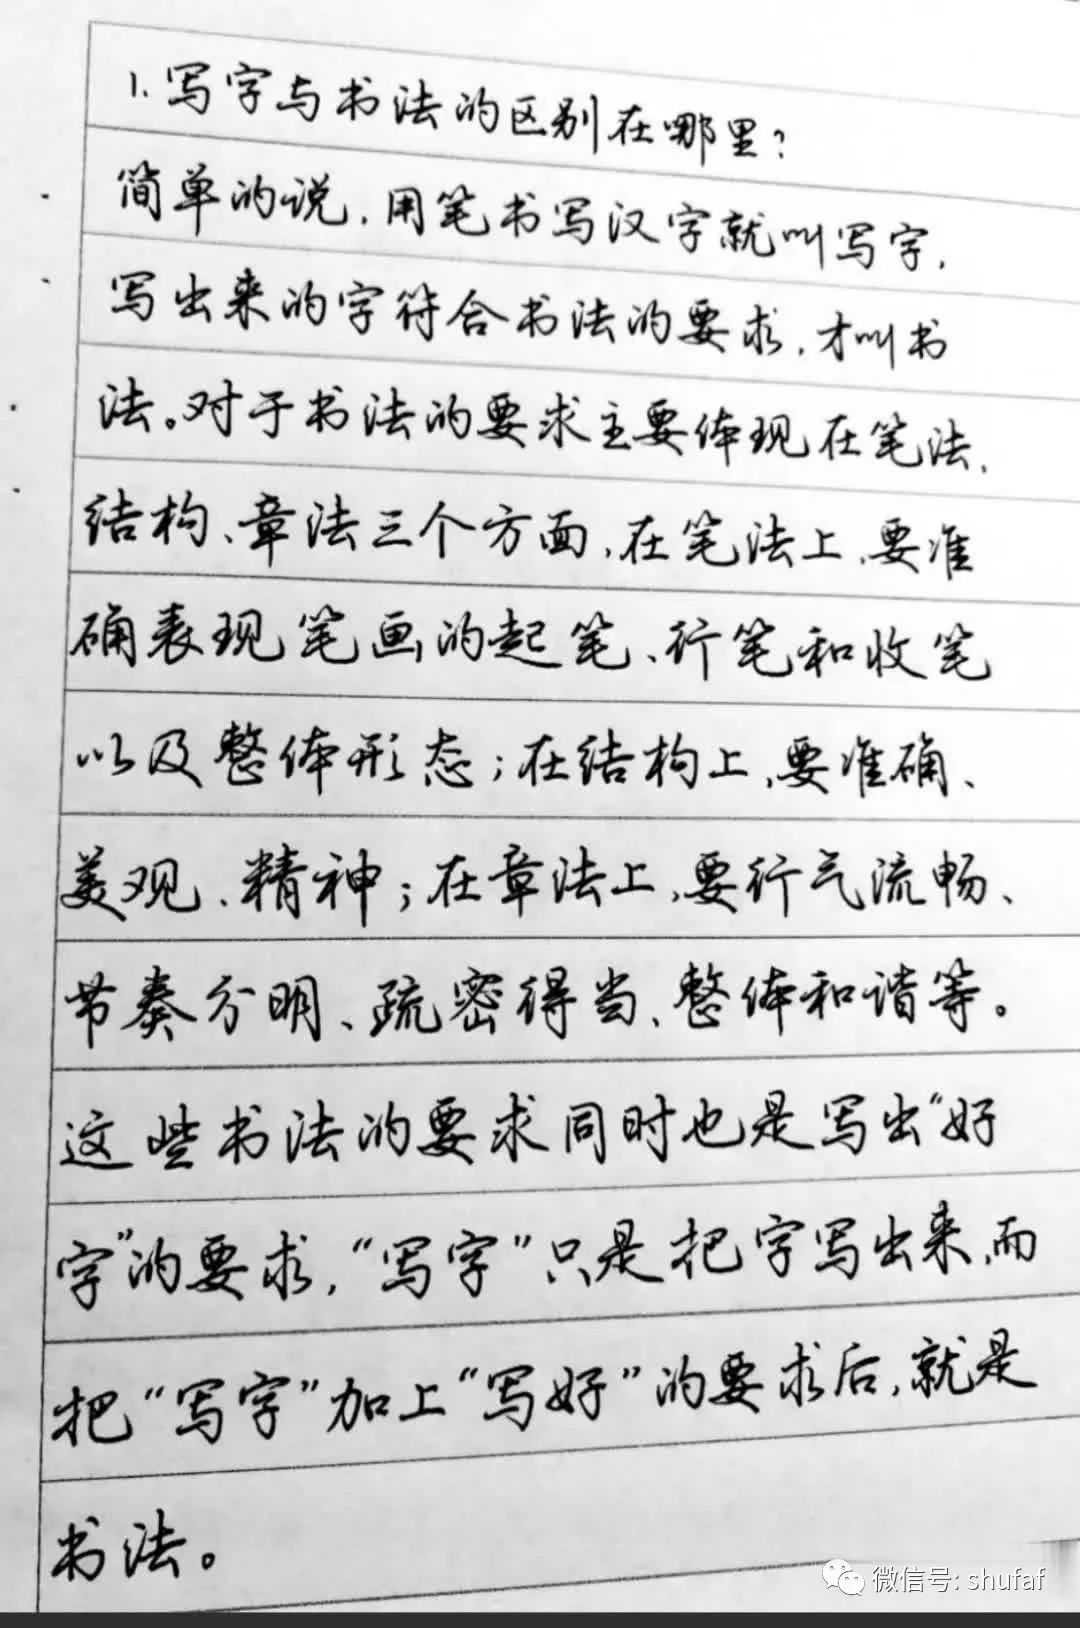 1.写字与书法的区别在哪里?
简单的说,用笔书写汉字就叫写字,
写出来的字符合书法的要求,才叫书
法。对于书法的要求主要体现在笔法、
结构、章法三个方面,在笔法上,要准
确表现笔画的起笔、行笔和收笔
以及整体形态;在结构上,要准确、
美观、精神;在章法上,要行气流畅、
节奏分明、疏密得当、整体和谐等。
这些书法的要求同时也是写出“好
字”的要求,“写字”只是把字写出来,而
把“写字”加上“写好”的要求后,就是
书法。
微信号: shufaf